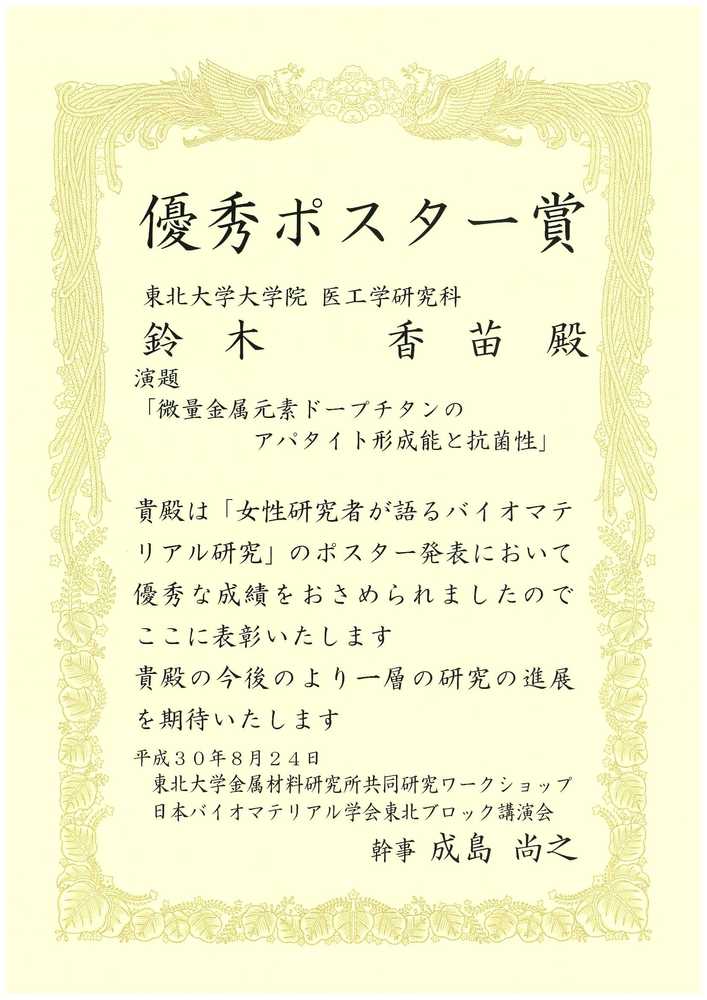 優秀ポスター賞
東北大学大学院 医工学研究科
鈴木 香苗 殿
演題
「微量金属元素ドープチタンの
アパタイト形成能と抗菌性」
貴殿は「女性研究者が語るバイオマテ
リアル研究」のポスター発表において
優秀な成績をおさめられましたので
ここに表彰いたします
貴殿の今後のより一層の研究の進展
を期待いたします
平成３０年８月２４日
東北大学金属材料研究所共同研究ワークショップ
日本バイオマテリアル学会東北ブロック講演会
幹事 成島 尚之